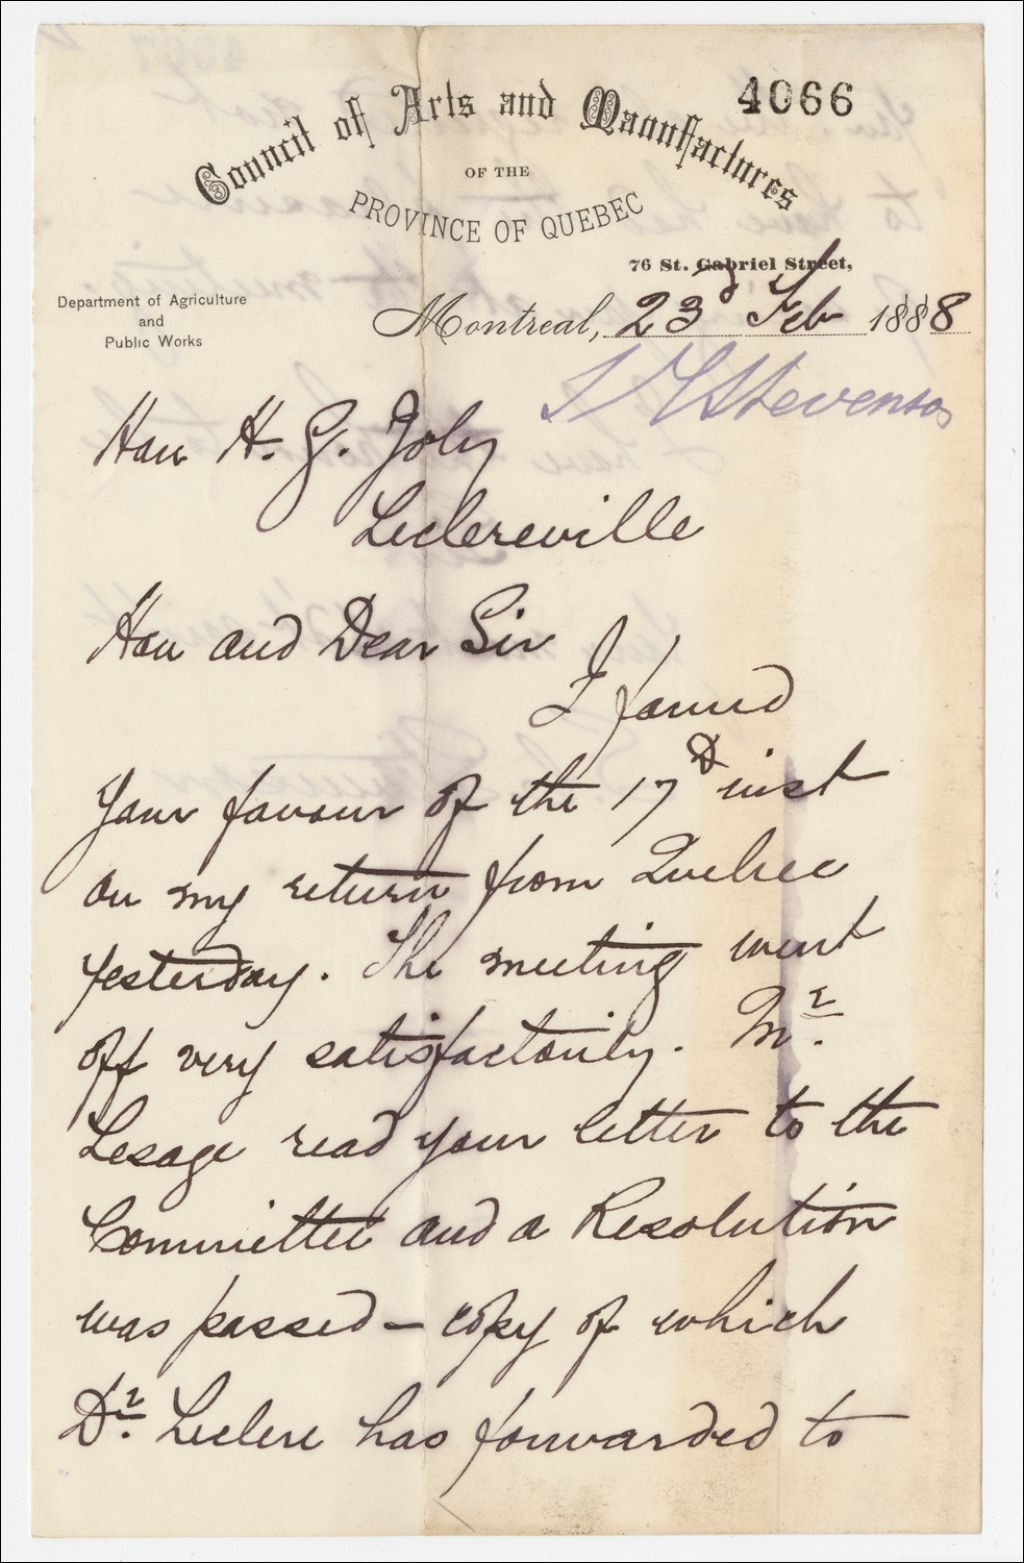 4066
Council of Arts and Manufactures
OF THE
PROVINCE OF QUEBEC
76 St. Gabriel Street,
Department of Agriculture
and
Public Works
Montreal, 23d Feb 1888
S C Stevenson
Hon H. G. Joly
Leclercville
Hon and Dear Sir
I found
your favour of the 17th inst
on my return from Quebec
yesterday. The meeting went
off very satisfactorily. Mr.
Lesage read your letter to the
Committee and a Resolution
was passed – copy of which
Dr. Leclerc has forwarded to